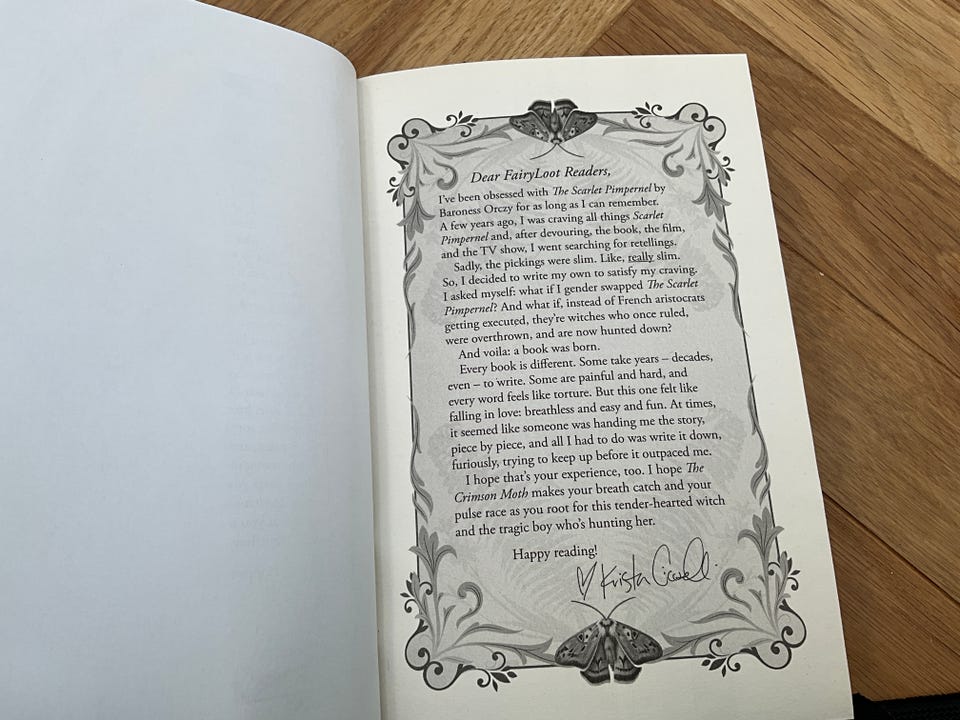 Dear FairyLoot Readers,
I've been obsessed with The Scarlet Pimpernel by
Baroness Orczy for as long as I can remember.
A few years ago, I was craving all things Scarlet
Pimpernel and, after devouring, the book, the film,
and the TV show, I went searching for retellings.
Sadly, the pickings were slim. Like, really slim.
So, I decided to write my own to satisfy my craving.
I asked myself: what if I gender swapped The Scarlet
Pimpernel? And what if, instead of French aristocrats
getting executed, they're witches who once ruled,
were overthrown, and are now hunted down?
And voila: a book was born.
Every book is different. Some take years – decades,
even – to write. Some are painful and hard, and
every word feels like torture. But this one felt like
falling in love: breathless and easy and fun. At times,
it seemed like someone was handing me the story,
piece by piece, and all I had to do was write it down,
furiously, trying to keep up before it outpaced me.
I hope that's your experience, too. I hope The
Crimson Moth makes your breath catch and your
pulse race as you root for this tender-hearted witch
and the tragic boy who's hunting her.
Happy reading!
♡ Kristen Ciccarelli